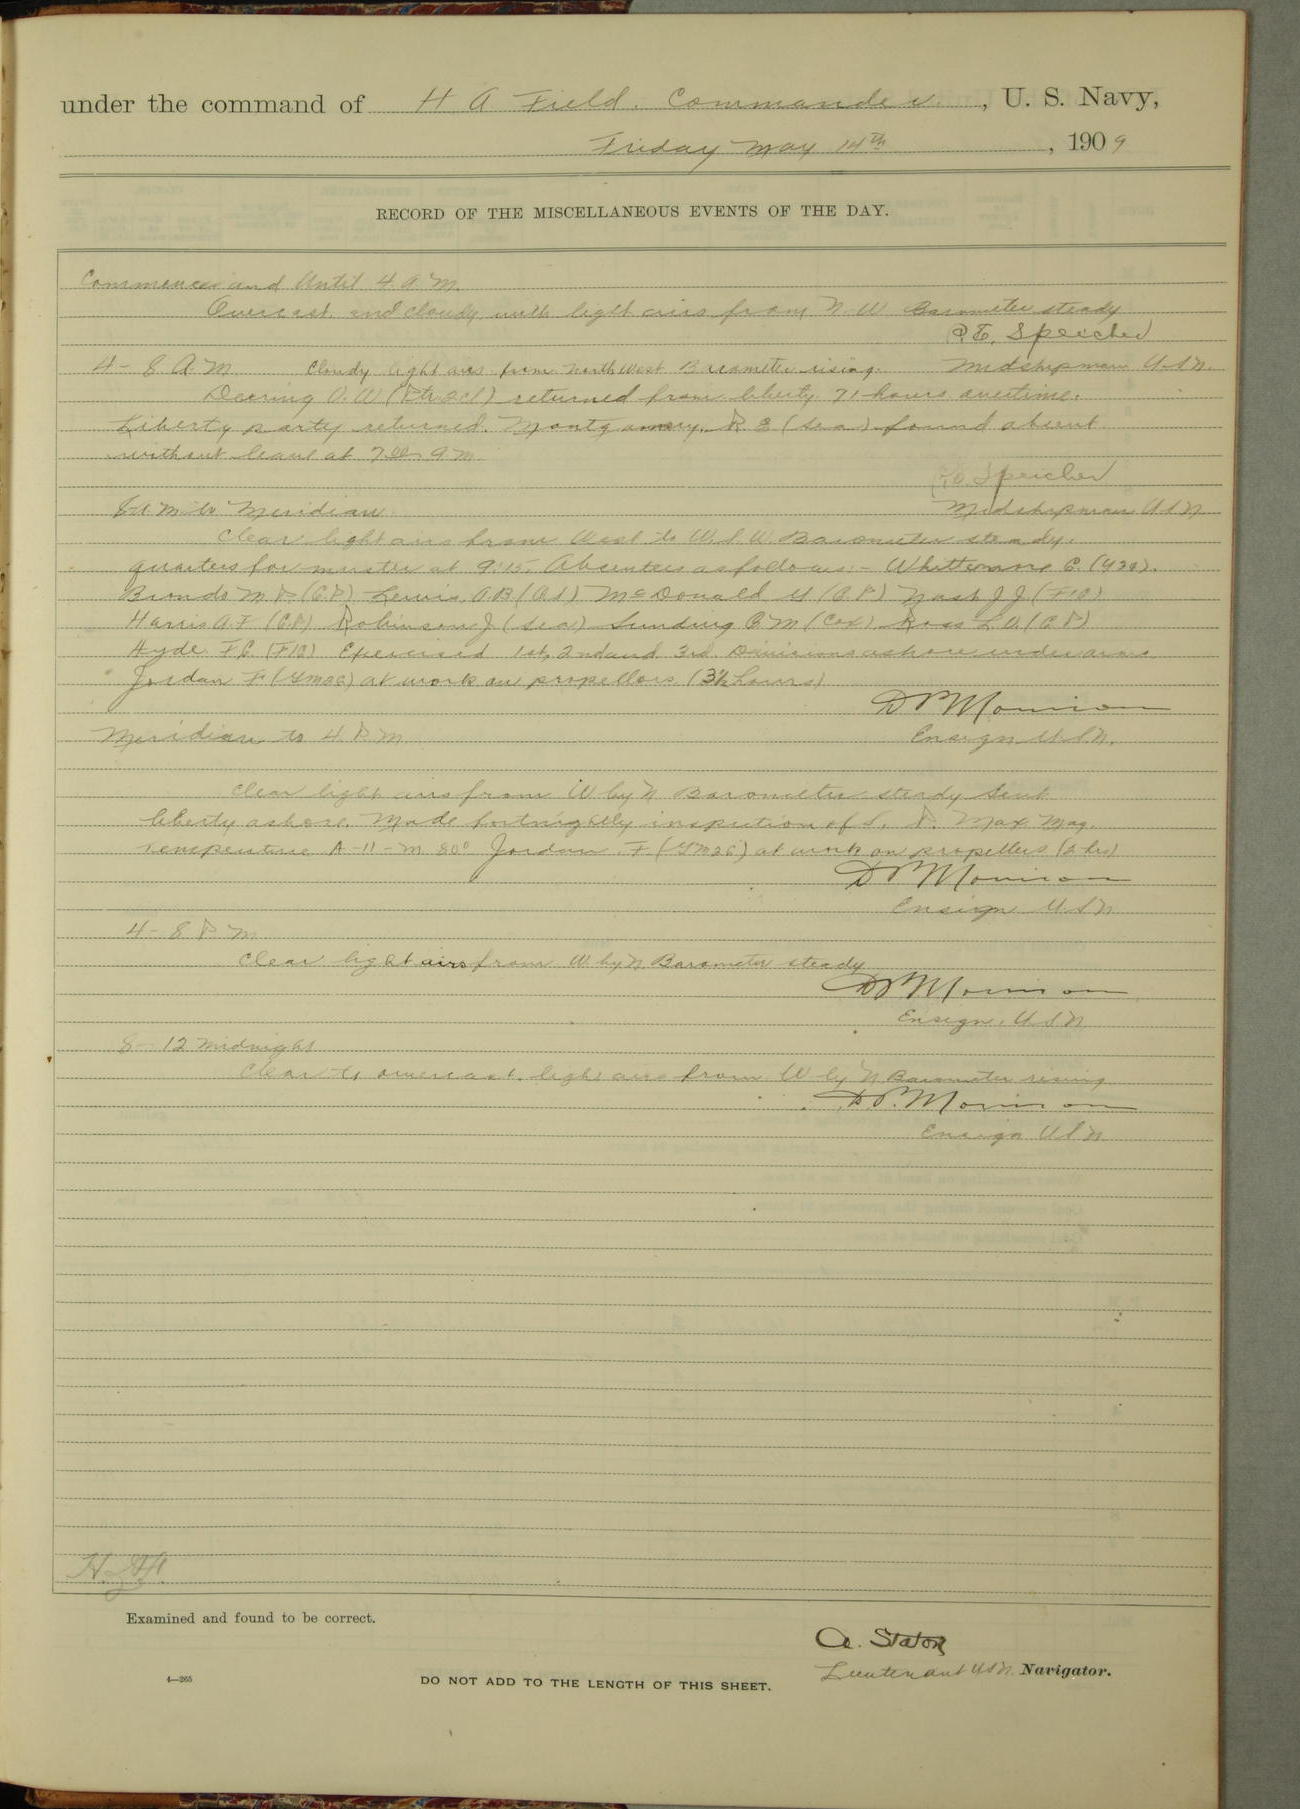 under the command of H A Field. Commander, U. S. Navy,
Friday May 14th, 1909
RECORD OF THE MISCELLANEOUS EVENTS OF THE DAY.
Commences and Until 4 A.M.
Overcast and cloudy with light airs from N.W Barometer steady
Speicher
4 - 8 A.M. Cloudy light airs from North West Barometer rising. Midshipman U.S.N.
Deering O.W returned from liberty 71 hours overtime.
Liberty party returned. Montgomery. R E (Sea) found absent
without leave at A.M
Speicher
8 A.M to Meridian Midshipman U S N
Clear light airs from West to W.S.W. Barometer steady.
quarters for muster at 9:15. Absentees as follows:- Whittemore C.
M P. (C.P.) Lewis, A.B McDonald (C.P.) Nash J J (F1C)
Harris A.F (C.P.) Robinson J (Sea) Sunding C M (Cox) Ross L.O. (C P)
Hyde. F.C. (F1C) Exercised 1st, 2nd and 3rd. Divisions ashore under arms
Jordan F (GM2C) at work on propellors (3½ hours)
D P Morrison
Meridian to 4 P M Ensign U.S.N.
Clear light airs from W by N Barometer steady Sent
liberty ashore. Made fortnightly inspection of S. P. Max Mag.
temperature A-11-M 80° Jordan. F (GM2C) at work on propellers (2 hrs)
D P Morrison
Ensign U S N
4 - 8 P M
Clear light airs from W by N Barometer steady
D P Morrison
Ensign. U S N
8 - 12 Midnight
Clear to overcast. light airs from W by N Barometer rising
D P. Morrison
Ensign U S N
Examined and found to be correct.
A. Staton
Lieutenant U.S.N. Navigator.
4—265
DO NOT ADD TO THE LENGTH OF THIS SHEET.